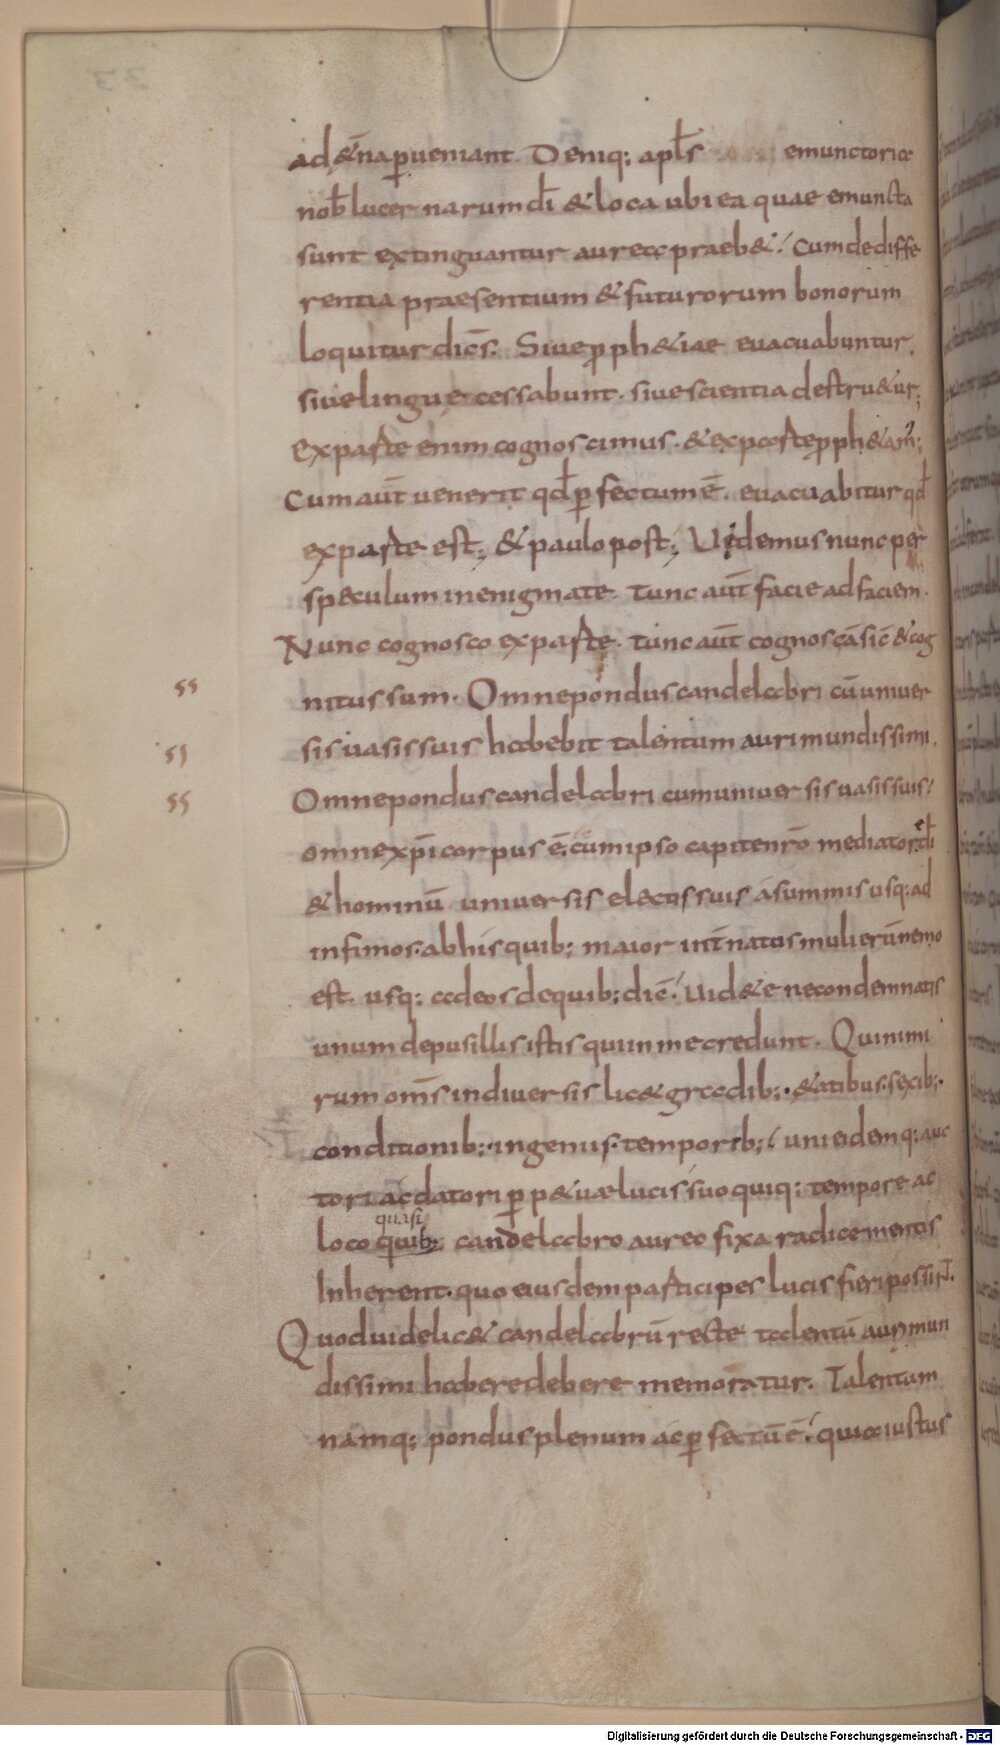 ad &̄na ꝑueniant. Deniq; apłs emunctoria
nob̄ lucernarum dī & loca ubi ea quae emuncta
sunt extinguantur aurea praeb&; Cum de diffe
rentia praesentium & futurorum bonorum
loquitur dicēs. Siue ꝓph&iae euacuabuntur.
siue lingue cessabunt. siue scientia destru&ur;
Ex parte enim cognoscimus. & ex parte ꝓph&am';
Cum aūt uenerit qđ ꝑfectum ē. euacuabitur qđ
ex parte est; & paulo post; Videmus nunc per
speculum in enigmate. tunc aūt facie ad faciem.
Nunc cognosco ex parte. tunc aūt cognoscā sic̄ & cog
55 nitus sum. Omne pondus candelabri cū uniuer
5) sis uasis suis habebit talentum auri mundissimi.
55 Omne pondus candelabri cum uniuersis uasis suis;
omne xp̄i corpus ē. cum ipso capite nr̄o mediatore dī
& hominū uniuersis electis suis a summis usq; ad
infimos. ab his quib; maior int̄ natos mulierū nemo
est. usq; ad eos de quib; dic̄; Uid&e ne condemnatis
unum de pusillis istis qui in me credunt. Qui nimi
rum om̄s in diuersis lic& gradib;. &atibus. sexib;.
conditionib;. ingeniis. temporib;; uni eidemq; auc
tori ac datori ꝑp&uae lucis suo quiq; tempore ac
loco quasi quib; candelabro aureo fixa radice mentis
Inherent. quo eiusdem participes lucis fieri possint.
Quod uidelic& candelabrū recte talentū auri mun
dissimi habere debere memoratur. Talentum
namq; pondus plenum ac ꝑfectū ē; quia iustus
Digitalisierung gefördert durch die Deutsche Forschungsgemeinschaft - DFG